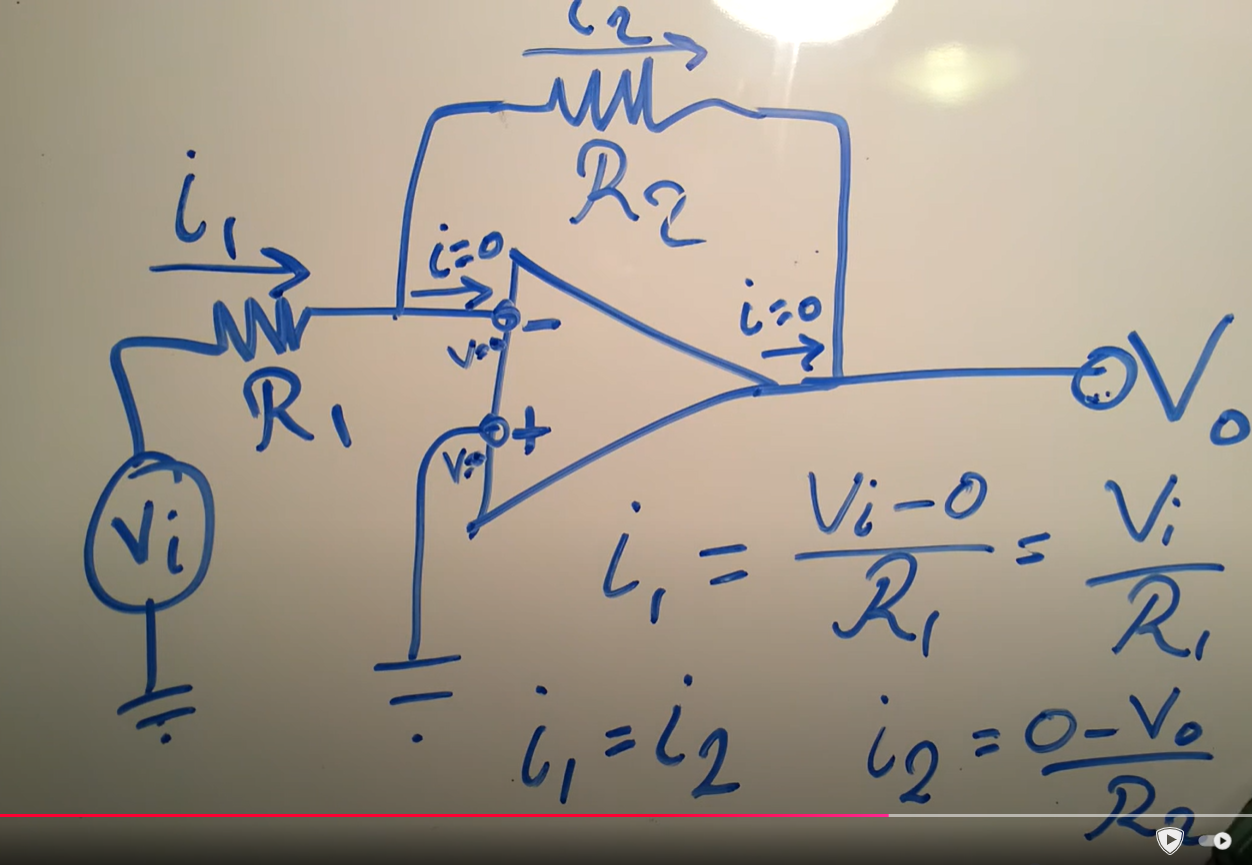 i₂
R₂
i₁
i=0
-
i=0
R₁
V=0
+
V=0
Vi
Vₒ
i₁ = Vi-0/R₁ = Vi/R₁
i₁ = i₂
i₂ = 0-Vₒ/R₂